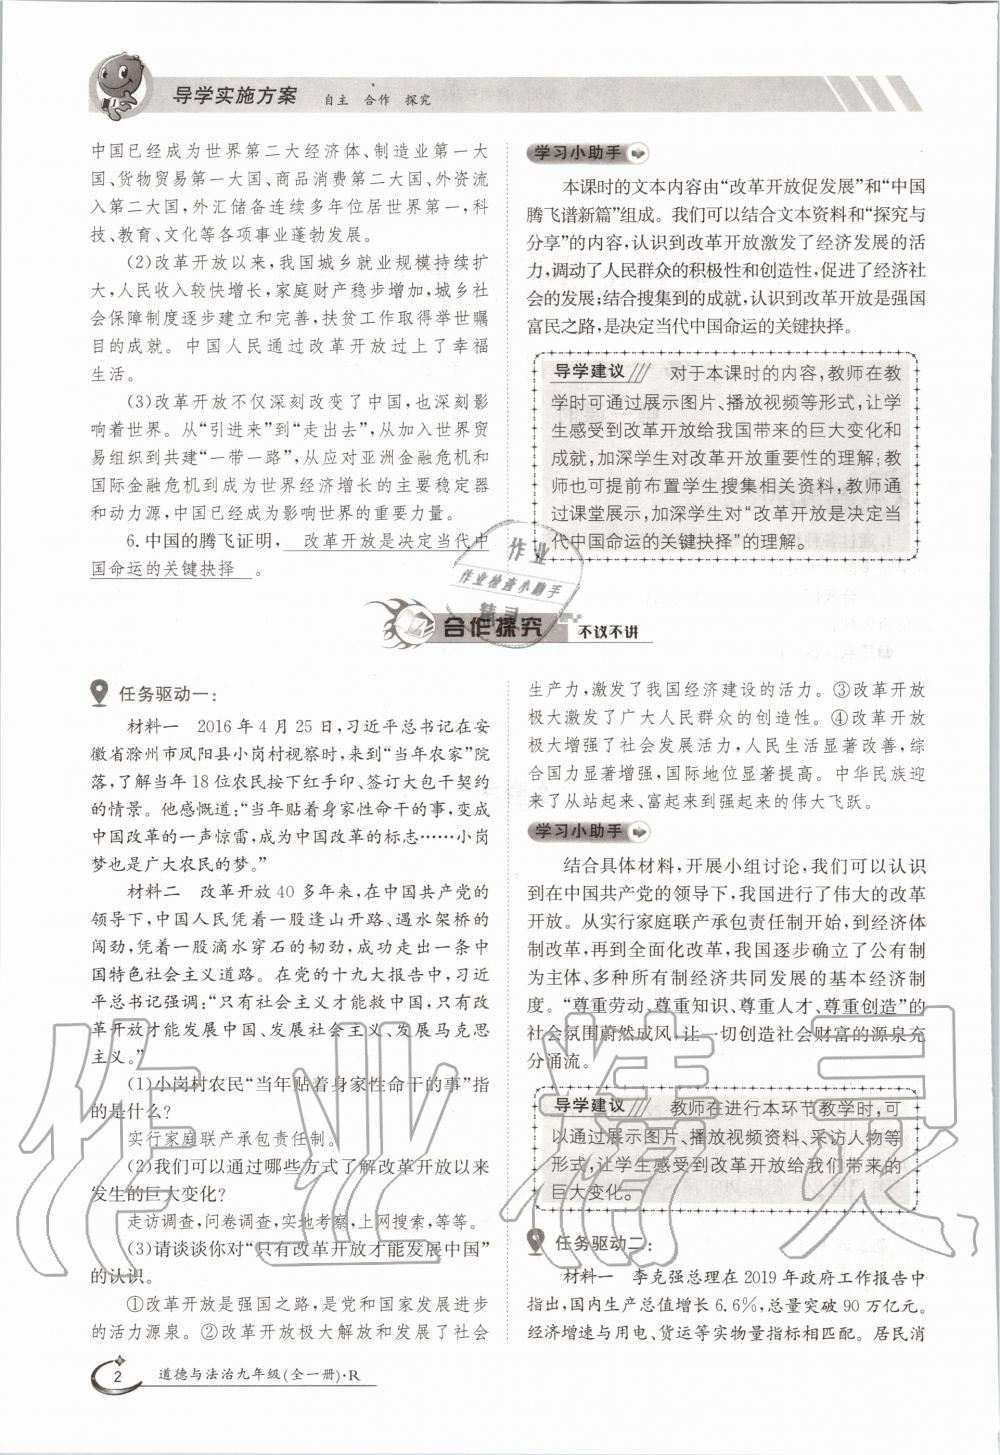 导学实施方案 自主 合作 探究
中国已经成为世界第二大经济体、制造业第一大
国、货物贸易第一大国、商品消费第二大国、外资流
入第二大国,外汇储备连续多年位居世界第一,科
技、教育、文化等各项事业蓬勃发展。
(2)改革开放以来,我国城乡就业规模持续扩
大,人民收入较快增长,家庭财产稳步增加,城乡社
会保障制度逐步建立和完善,扶贫工作取得举世瞩
目的成就。中国人民通过改革开放过上了幸福
生活。
(3)改革开放不仅深刻改变了中国,也深刻影
响着世界。从“引进来”到“走出去”,从加入世界贸
易组织到共建“一带一路”,从应对亚洲金融危机和
国际金融危机到成为世界经济增长的主要稳定器
和动力源,中国已经成为影响世界的重要力量。
6.中国的腾飞证明, 改革开放是决定当代中
国命运的关键抉择 。
学习小助手
本课时的文本内容由“改革开放促发展”和“中国
腾飞谱新篇”组成。我们可以结合文本资料和“探究与
分享”的内容,认识到改革开放激发了经济发展的活
力,调动了人民群众的积极性和创造性,促进了经济社
会的发展;结合搜集到的成就,认识到改革开放是强国
富民之路,是决定当代中国命运的关键抉择。
导学建议 对于本课时的内容,教师在教
学时可通过展示图片、播放视频等形式,让学
生感受到改革开放给我国带来的巨大变化和
成就,加深学生对改革开放重要性的理解;教
师也可提前布置学生搜集相关资料,教师通
过课堂展示,加深学生对“改革开放是决定当
代中国命运的关键抉择”的理解。
作业
作业检查小助手
精灵
合作探究 不议不讲
任务驱动一:
材料一 2016年4月25日,习近平总书记在安
徽省滁州市凤阳县小岗村视察时,来到“当年农家”院
落,了解当年18位农民按下红手印、签订大包干契约
的情景。他感慨道:“当年贴着身家性命干的事,变成
中国改革的一声惊雷,成为中国改革的标志……小岗
梦也是广大农民的梦。”
材料二 改革开放40多年来,在中国共产党的
领导下,中国人民凭着一股逢山开路、遇水架桥的
闯劲,凭着一股滴水穿石的韧劲,成功走出一条中
国特色社会主义道路。在党的十九大报告中,习近
平总书记强调:“只有社会主义才能救中国,只有改
革开放才能发展中国、发展社会主义、发展马克思
主义。”
(1)小岗村农民“当年贴着身家性命干的事”指
的是什么?
实行家庭联产承包责任制。
(2)我们可以通过哪些方式了解改革开放以来
发生的巨大变化?
走访调查,问卷调查,实地考察,上网搜索,等等。
(3)请谈谈你对“只有改革开放才能发展中国”
的认识。
①改革开放是强国之路,是党和国家发展进步
的活力源泉。②改革开放极大解放和发展了社会
生产力,激发了我国经济建设的活力。③改革开放
极大激发了广大人民群众的创造性。④改革开放
极大增强了社会发展活力,人民生活显著改善,综
合国力显著增强,国际地位显著提高。中华民族迎
来了从站起来、富起来到强起来的伟大飞跃。
学习小助手
结合具体材料,开展小组讨论,我们可以认识
到在中国共产党的领导下,我国进行了伟大的改革
开放。从实行家庭联产承包责任制开始,到经济体
制改革,再到全面化改革,我国逐步确立了公有制
为主体、多种所有制经济共同发展的基本经济制
度。“尊重劳动、尊重知识、尊重人才、尊重创造”的
社会氛围蔚然成风,让一切创造社会财富的源泉充
分涌流。
导学建议 教师在进行本环节教学时,可
以通过展示图片、播放视频资料、采访人物等
形式,让学生感受到改革开放给我们带来的
巨大变化。
任务驱动二:
材料一 李克强总理在2019年政府工作报告中
指出,国内生产总值增长6.6%,总量突破90万亿元。
经济增速与用电、货运等实物量指标相匹配。居民消
作业精灵
2 道德与法治九年级(全一册)·R